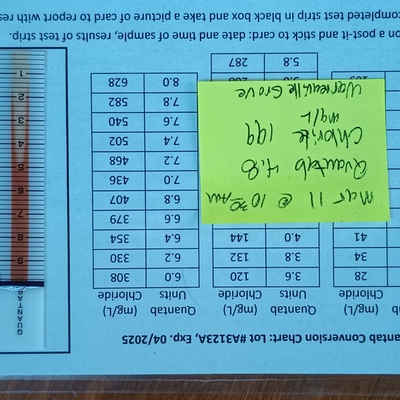 antab Conversion Chart: Lot #A3123A, Exp. 04/2025
ab (mg/L) Quantab (mg/L) Quantab (mg/L)
Chloride Units Chloride Units Chloride
28 3.6 120 6.0 308
34 3.8 132 6.2 330
41 4.0 144 6.4 354
6.6 379
6.8 407
7.0 436
7.2 468
7.4 502
7.6 540
7.8 582
5.8 287 8.0 628
Mar 11 @ 10:30 AM
Quantab 4.8
Chloride 199
mg/L
Warrenville Grove
QUANTAB
9
8
7
6
5
4
3
2
1
on a post-it and stick to card: date and time of sample, results of test strip.
ompleted test strip in black box and take a picture of card to report with res